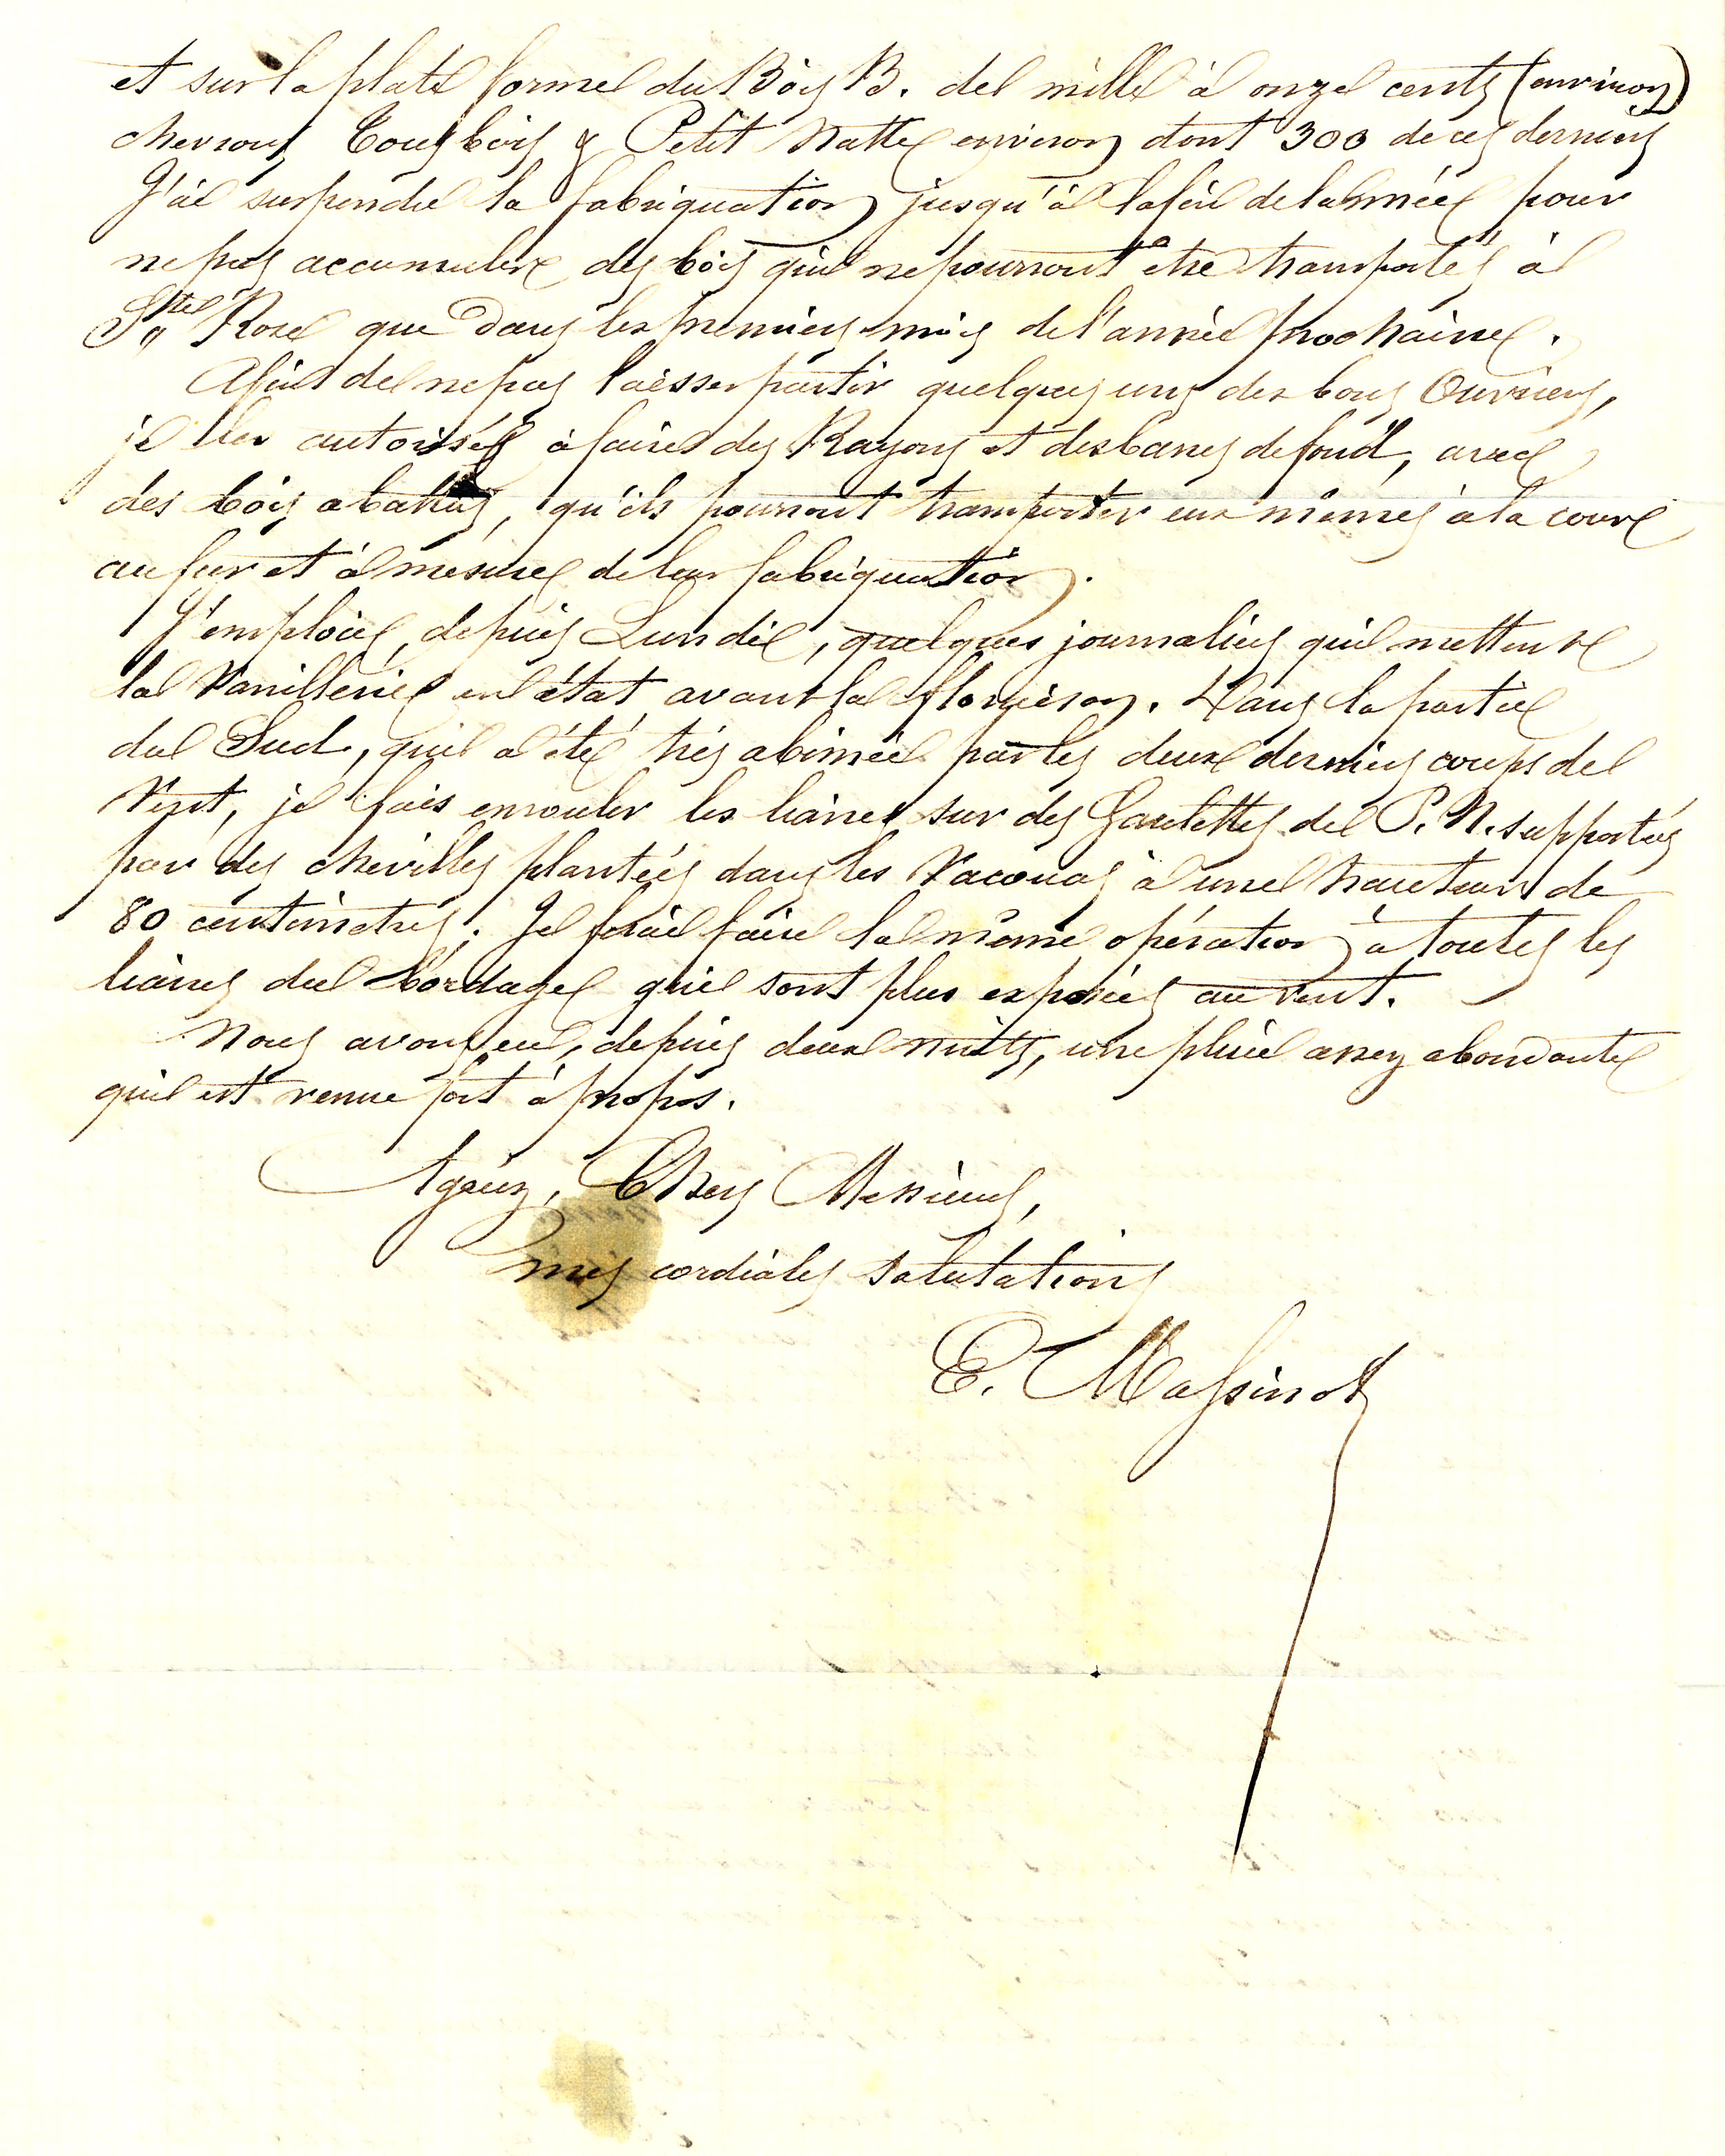 et sur la plate forme du Bois B. de mille à onze cents (environ)
chevrons Tous bois & Petit Natte environ dont 300 de ces derniers
J'ai suspendu la fabriquation jusqu'à la fin de l'année pour
ne pas accumuler des bois qui ne pourront être transportés à
Ste Rose que dans les premiers mois de l'année prochaine.
Afin de ne pas laisser partir quelques uns des bons Ouvriers,
je les autorisés à faire des Rayons et des barres de fond, avec
des bois abattus, qu'ils pourront transporter eux mêmes à la cour
au fur et à mesure de leur fabriquation.
J'emploie, depuis Lundi, quelques journaliers qui mettent
la Vanillerie en état avant la floraison. Dans la partie
du Sud, qui a été très abimée par les deux derniers coups de
Vent, je fais enrouler les lianes sur des Gaulettes de P. N. supportées
par des chevilles plantées dans les Vacouas à une hauteur de
80 centimètres. Je ferai faire la même opération à toutes les
lianes du bordage qui sont plus exposées au vent.
Nous avons eu, depuis deux nuits, une pluie assez abondante
qui est venue fort à propos.
Agréez, Chers Messieurs,
mes cordiales salutations
E. Massinot